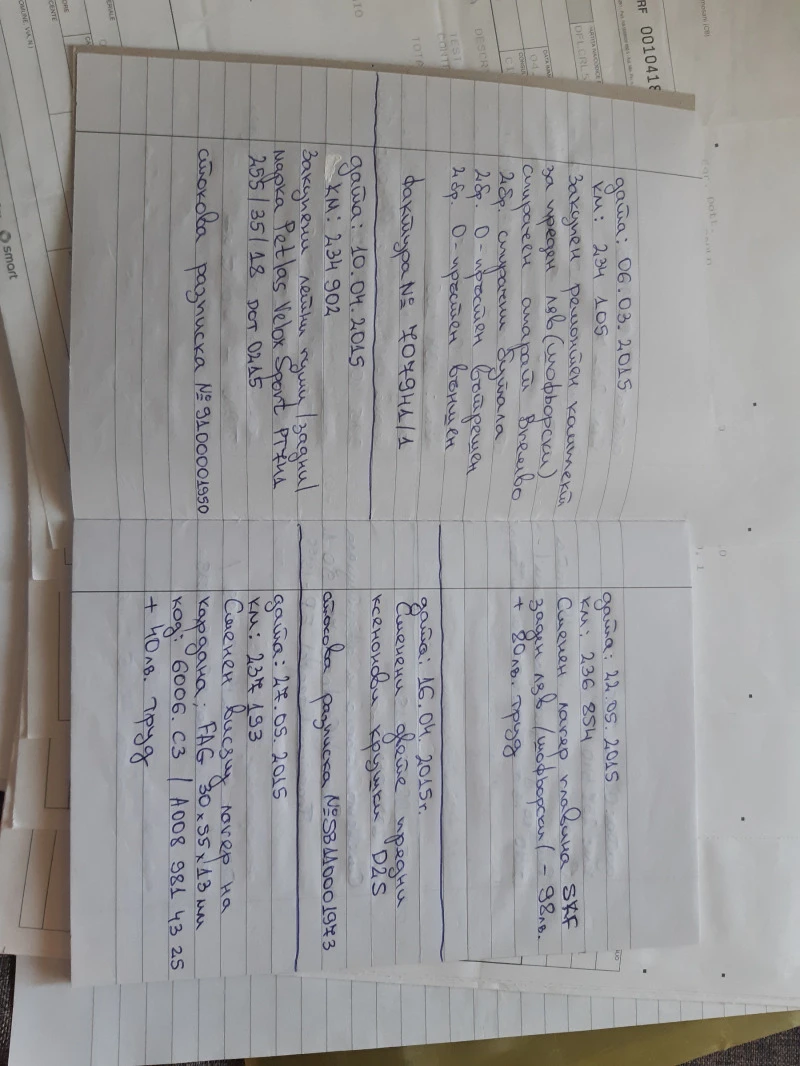 дата: 06.03.2015
км: 234 105
Закупен ремонтен комплект
за преден ляв (шофьорски)
спирачен апарат Brembo
2бр. спирачни бутала
2бр. О-пръстен вътрешен
2бр. О-пръстен външен
фактура № 7079H1/1
дата: 10.04.2015
км: 234 902
Закупени летни гуми /задни/
марка Petlas Velox Sport PT741
255/35/18 DOT 0215
стокова разписка № 9100001950
дата: 22.05.2015
км: 236 854
Сменен лагер главина SKF
заден ляв /шофьорски/ - 98лв.
+ 80лв. труд
дата: 16.04.2015г.
Сменени двете предни
ксенонови крушки D2S
стокова разписка №SB110001973
дата: 27.05.2015
км: 237 193
Сменен висящ лагер на
кардана; FAG 30x55x13мм
код: 6006.C3 / A008 981 43 25
+ 40лв. труд
smart
RF 0010418